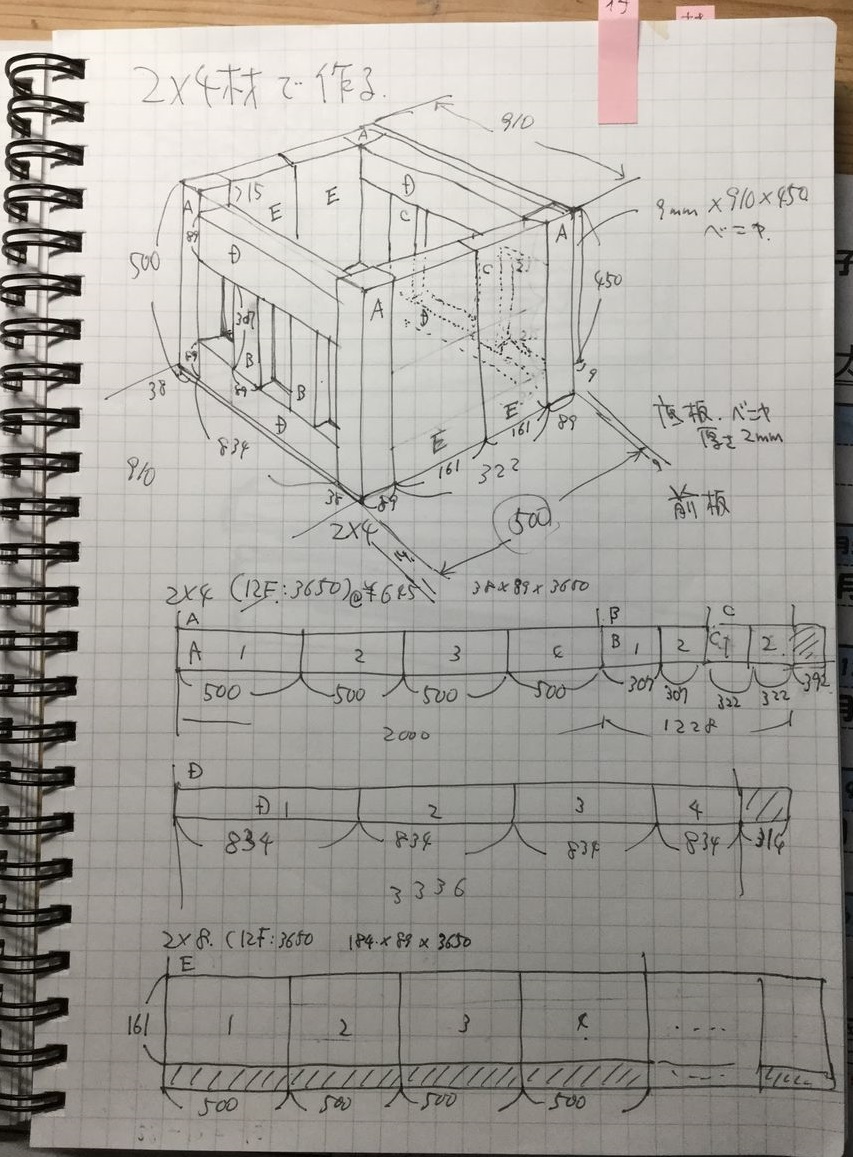 2×4材で作る.
910
9mm×910×450
ベニヤ.
A
A
A
A
715
E
E
D
C
89
500
D
C
450
307
B
B
D
89
89
B
D
E
E
9
38
834
161
89
底板.ベニヤ
厚さ2mm
910
161
322
38
89
500
9
前板
2×4
2×4 (12F:3650)@¥645 38×89×3650
A B C
A 1 2 3 4 B 1 2 C1 2
500 500 500 500 307 307 322 322 392
2000 1228
D
D 1 2 3 4
834 834 834 834 314
3336
2×8. (12F:3650 184×89×3650
E
161 1 2 3 4 ....
500 500 500 500